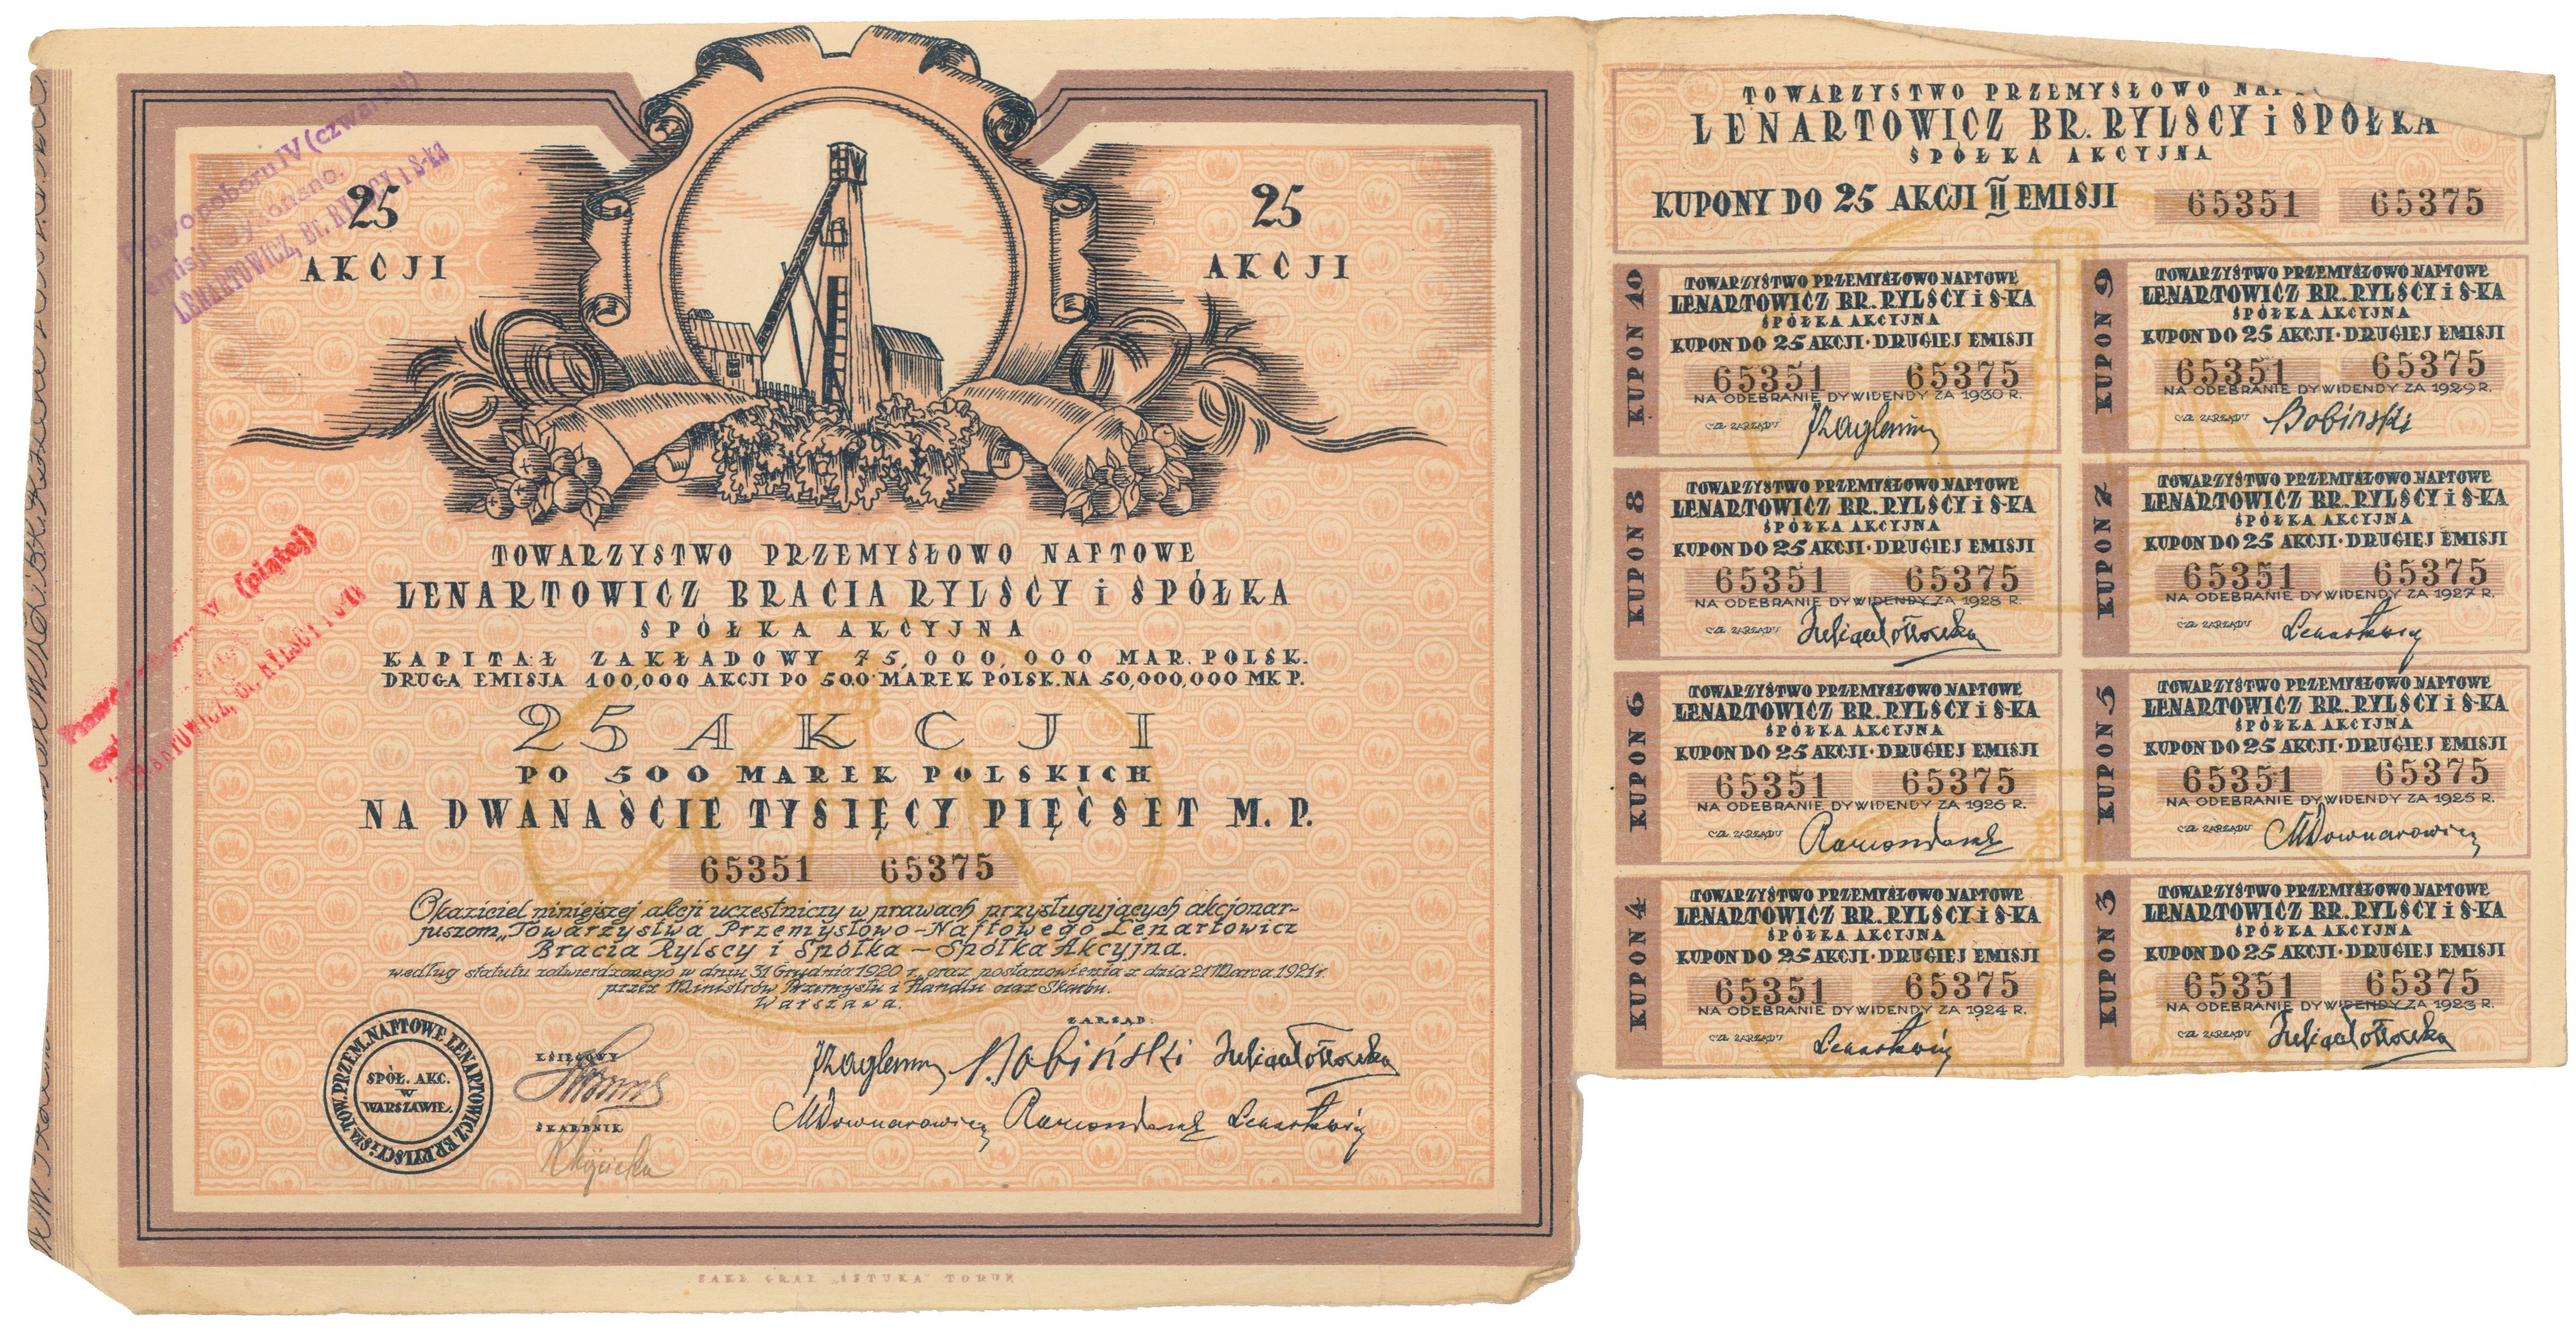 25
AKCJI
25
AKCJI
Prawo poboru IV (czwartej)
emisji wykonano.
LENARTOWICZ, Br. RYLSCY i S-ka
(piątej)
TOWARZYSTWO PRZEMYSŁOWO NAFTOWE
LENARTOWICZ BRACIA RYLSCY i SPÓŁKA
SPÓŁKA AKCYJNA
KAPITAŁ ZAKŁADOWY 75,000,000 MAR. POLSK.
DRUGA EMISJA 100,000 AKCJI PO 500 MAREK POLSK. NA 50,000,000 MK P.
25 AKCJI
PO 500 MAREK POLSKICH
NA DWANAŚCIE TYSIĘCY PIĘĆSET M. P.
65351 65375
Okaziciel niniejszej akcji uczestniczy w prawach przysługujących akcjonar-
juszom „Towarzystwa Przemysłowo-Naftowego Lenartowicz
Bracia Rylscy i Spółka - Spółka Akcyjna.
według statutu zatwierdzonego w dniu 31 Grudnia 1920 r. oraz postanowienia z dnia 21 Marca 1921 r.
przez Ministrów Przemysłu i Handlu oraz Skarbu.
Warszawa.
TOW. PRZEM. NAFTOWE LENARTOWICZ BR RYLSCY i S-ka
SPÓŁ. AKC.
W
WARSZAWIE.
KSIĘGOWY
SKARBNIK
ZARZĄD:
Bobiński
MDownarowicz
Lenartowicz
ZAKŁ. GRAF. „SZTUKA" TORUŃ
TOWARZYSTWO PRZEMYSŁOWO
LENARTOWICZ BR. RYLSCY i SPÓŁKA
SPÓŁKA AKCYJNA
KUPONY DO 25 AKCJI II EMISJI 65351 65375
KUPON 10
TOWARZYSTWO PRZEMYSŁOWO NAFTOWE
LENARTOWICZ BR. RYLSCY i S-KA
SPÓŁKA AKCYJNA
KUPON DO 25 AKCJI · DRUGIEJ EMISJI
65351 65375
NA ODEBRANIE DYWIDENDY ZA 1930 R.
ZA ZARZĄDU
KUPON 9
TOWARZYSTWO PRZEMYSŁOWO NAFTOWE
LENARTOWICZ BR. RYLSCY i S-KA
SPÓŁKA AKCYJNA
KUPON DO 25 AKCJI · DRUGIEJ EMISJI
65351 65375
NA ODEBRANIE DYWIDENDY ZA 1929 R.
ZA ZARZĄDU Bobiński
KUPON 8
TOWARZYSTWO PRZEMYSŁOWO NAFTOWE
LENARTOWICZ BR. RYLSCY i S-KA
SPÓŁKA AKCYJNA
KUPON DO 25 AKCJI · DRUGIEJ EMISJI
65351 65375
NA ODEBRANIE DYWIDENDY ZA 1928 R.
ZA ZARZĄDU
KUPON 7
TOWARZYSTWO PRZEMYSŁOWO NAFTOWE
LENARTOWICZ BR. RYLSCY i S-KA
SPÓŁKA AKCYJNA
KUPON DO 25 AKCJI · DRUGIEJ EMISJI
65351 65375
NA ODEBRANIE DYWIDENDY ZA 1927 R.
ZA ZARZĄDU Lenartowicz
KUPON 6
TOWARZYSTWO PRZEMYSŁOWO NAFTOWE
LENARTOWICZ BR. RYLSCY i S-KA
SPÓŁKA AKCYJNA
KUPON DO 25 AKCJI · DRUGIEJ EMISJI
65351 65375
NA ODEBRANIE DYWIDENDY ZA 1926 R.
ZA ZARZĄDU
KUPON 5
TOWARZYSTWO PRZEMYSŁOWO NAFTOWE
LENARTOWICZ BR. RYLSCY i S-KA
SPÓŁKA AKCYJNA
KUPON DO 25 AKCJI · DRUGIEJ EMISJI
65351 65375
NA ODEBRANIE DYWIDENDY ZA 1925 R.
ZA ZARZĄDU MDownarowicz
KUPON 4
TOWARZYSTWO PRZEMYSŁOWO NAFTOWE
LENARTOWICZ BR. RYLSCY i S-KA
SPÓŁKA AKCYJNA
KUPON DO 25 AKCJI · DRUGIEJ EMISJI
65351 65375
NA ODEBRANIE DYWIDENDY ZA 1924 R.
ZA ZARZĄDU Lenartowicz
KUPON 3
TOWARZYSTWO PRZEMYSŁOWO NAFTOWE
LENARTOWICZ BR. RYLSCY i S-KA
SPÓŁKA AKCYJNA
KUPON DO 25 AKCJI · DRUGIEJ EMISJI
65351 65375
NA ODEBRANIE DYWIDENDY ZA 1923 R.
ZA ZARZĄDU